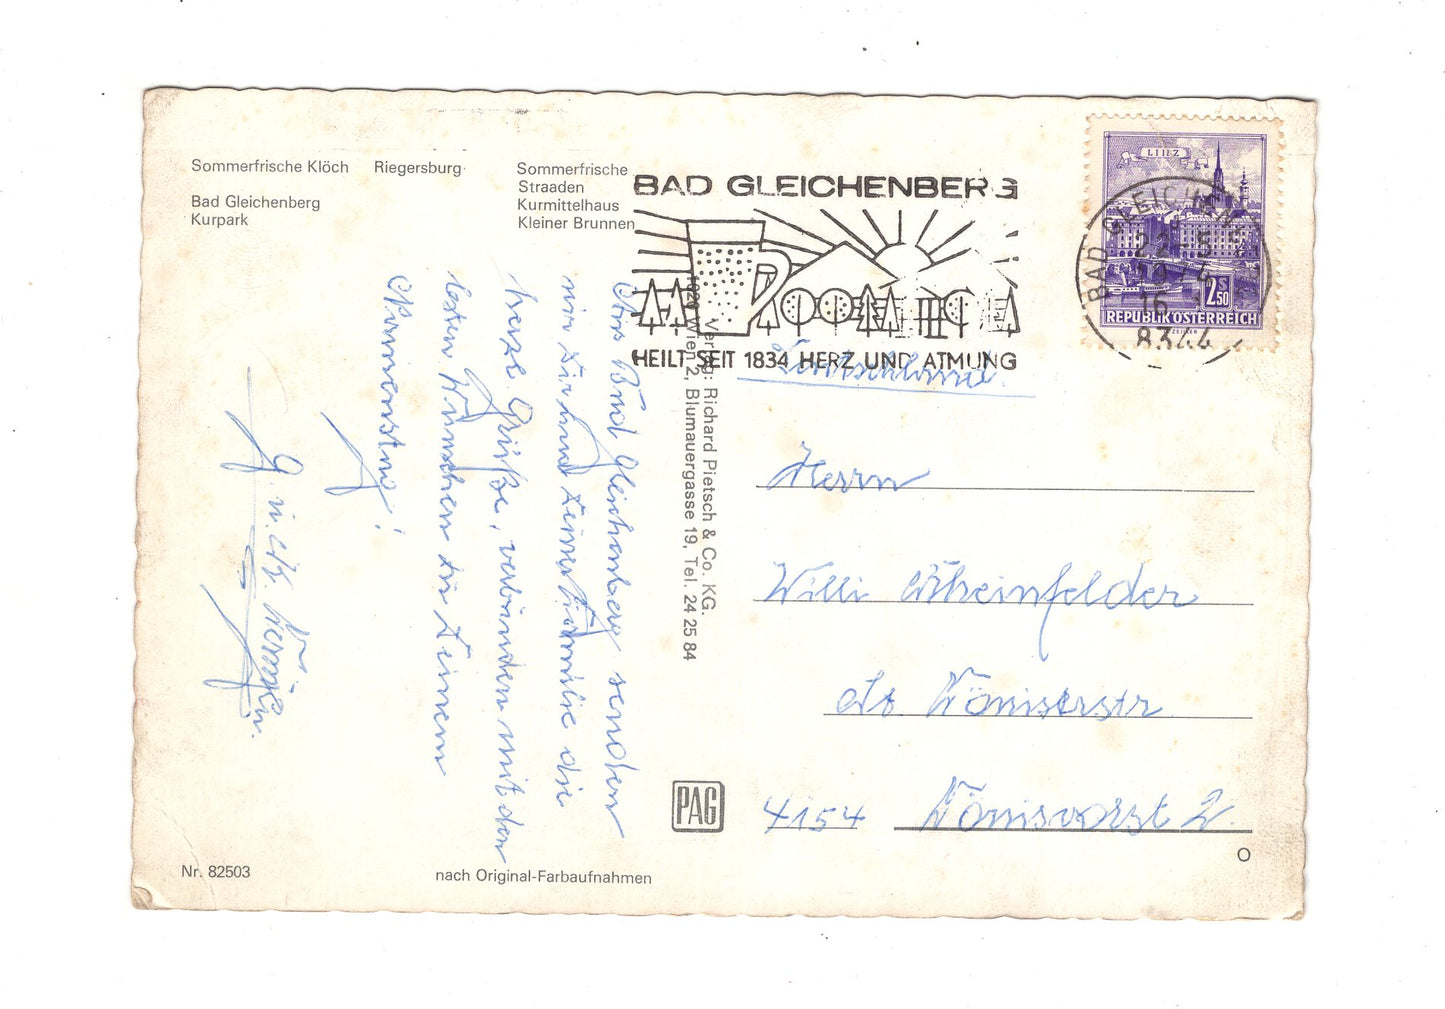 Sommerfrische Klöch
Riegersburg
Sommerfrische
Straaden
Kurmittelhaus
Kleiner Brunnen
Bad Gleichenberg
Kurpark
BAD GLEICHENBERG
HEILT SEIT 1834 HERZ UND ATMUNG
LINZ
2.50
S
REPUBLIK ÖSTERREICH
BAD GLEICHEN
22.-5
1974
16
8344
Aus Bad Gleichenberg senden
wir Dir und Deiner Familie die
herzl. Grüße, verbunden mit den
besten Wünschen zu Deinem
Namenstag!
Verlag: Richard Pietsch & Co. KG.
1020 Wien 2, Blumauergasse 19, Tel. 24 25 84
Deutschland
Herrn
Willi Rheinfelder
Königsstr
4154 Tönisvorst 2.
PAG
O
Nr. 82503
nach Original-Farbaufnahmen